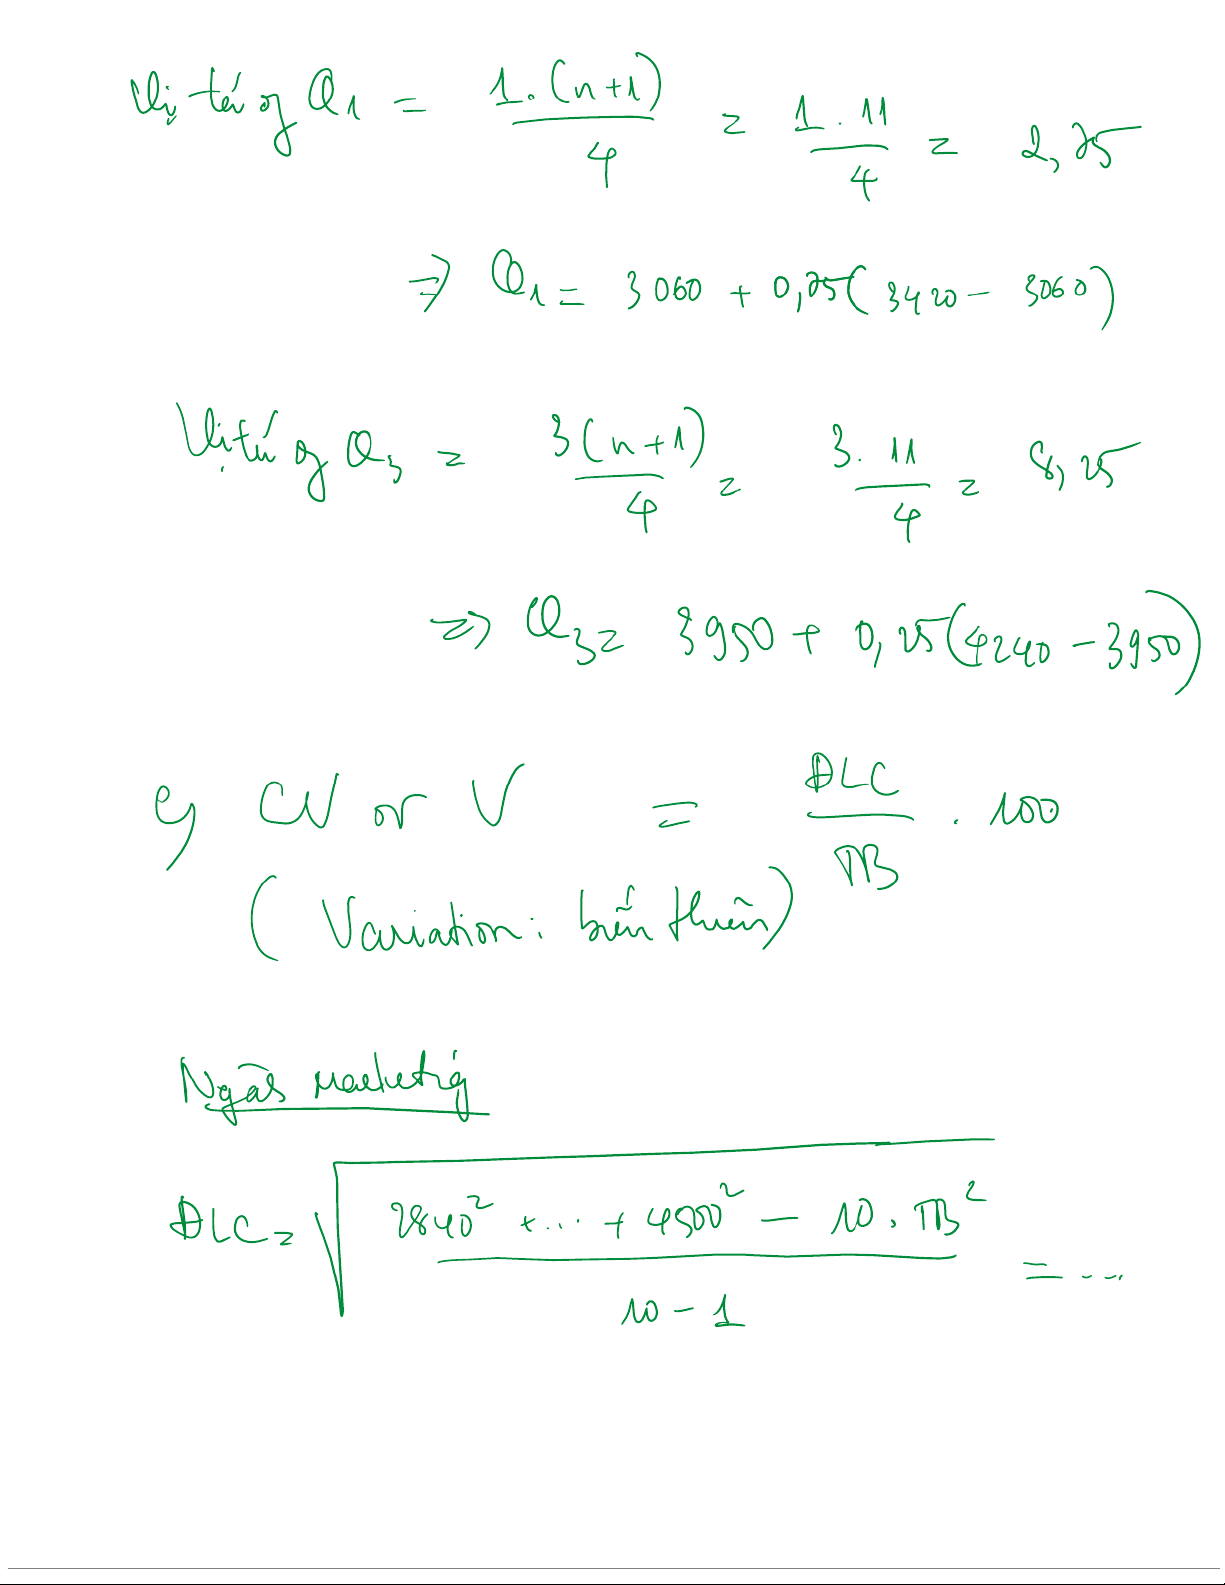 Vị trí of Q1 = 1.(n+1)/4 = 1.11/4 = 2,75
=> Q1 = 3060 + 0,75(3420 - 3060)
Vị trí of Q3 = 3(n+1)/4 = 3.11/4 = 8,25
=> Q3 = 3950 + 0,25(4240 - 3950)
e) CV or V = ĐLC/TB . 100
(Variation: biến thiên)
Ngành Marketing
ĐLC = √((2840² + ... + 4500² - 10. TB²)/(10 - 1)) = ...